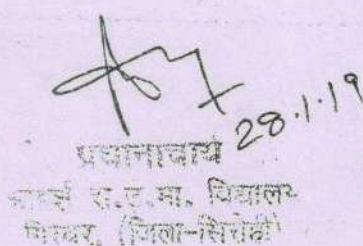 28.1.19
प्रधानाचार्य
आदर्श रा.उ.मा. विद्यालय
(जिला-सिरोही)